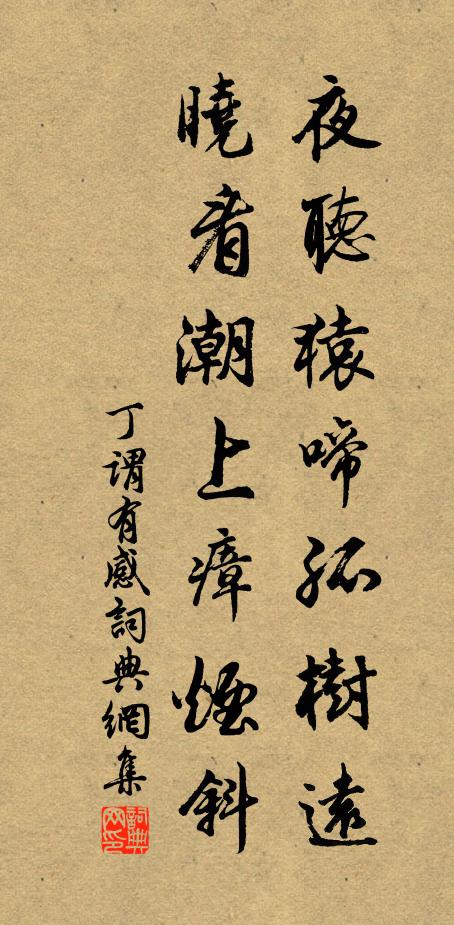 夜聽猿啼孤樹遠
曉看潮上瘴煙斜
丁謂有感詞典網集
詞典網印